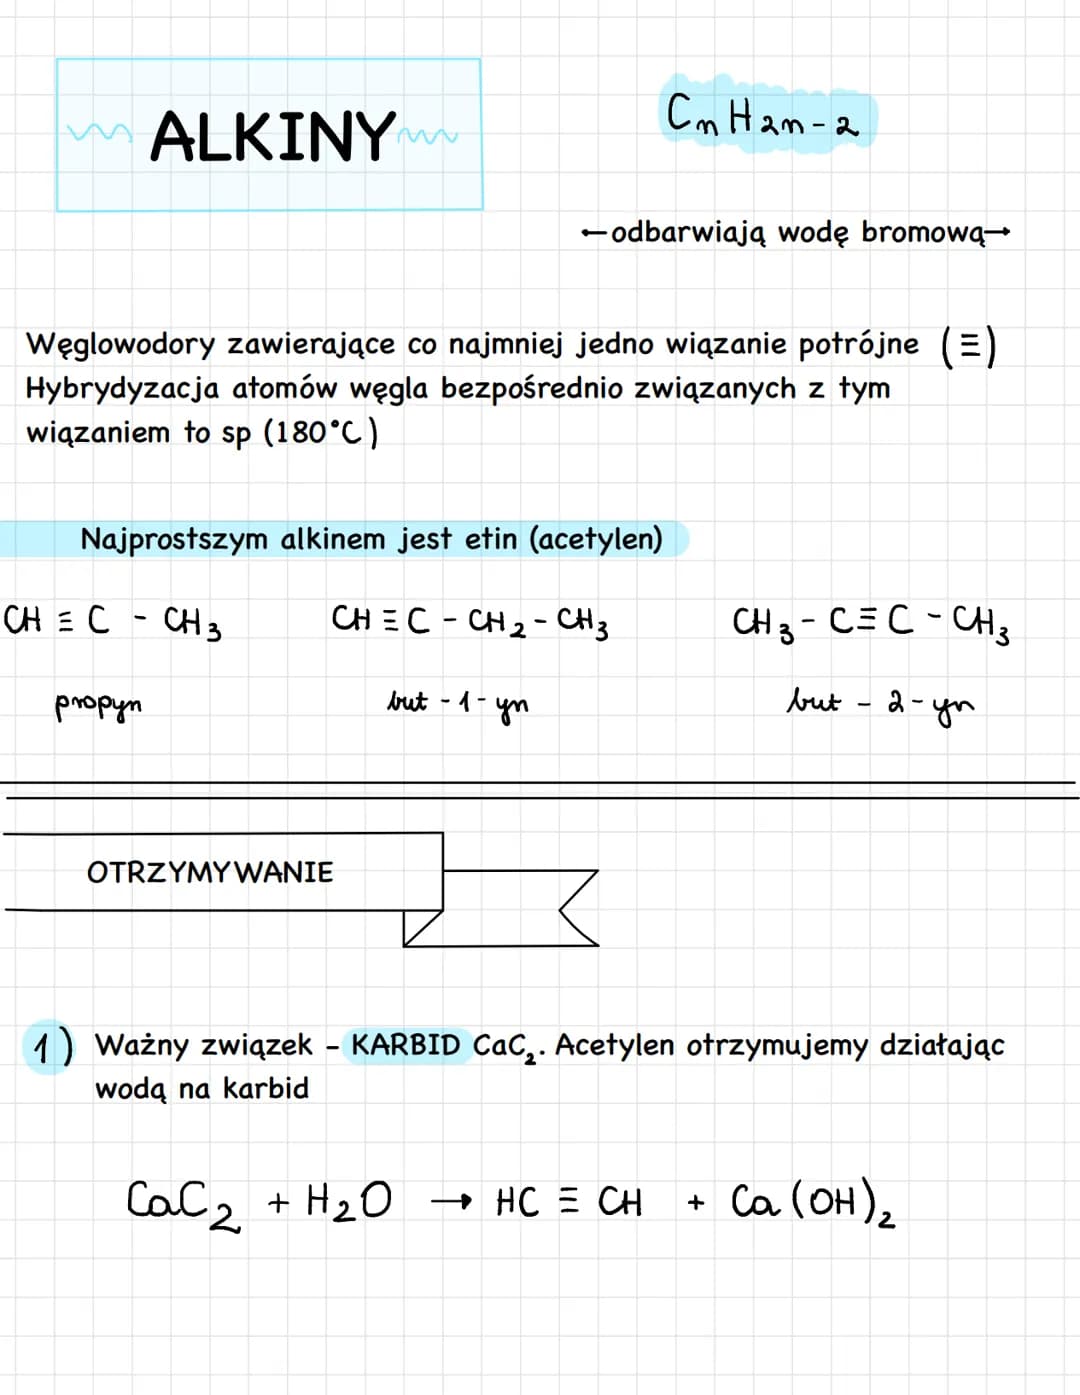 ALKINY
CnH2n-2
←odbarwiają wodę bromową→
Węglowodory zawierające co najmniej jedno wiązanie potrójne (≡)
Hybrydyzacja atomów węgla bezpośrednio związanych z tym
wiązaniem to sp (180°C)
Najprostszym alkinem jest etin (acetylen)
CH ≡ C - CH3 CH ≡ C - CH2 - CH3 CH3 - C ≡ C - CH3
propyn but - 1 - yn but - 2 - yn
OTRZYMYWANIE
1) Ważny związek - KARBID CaC₂. Acetylen otrzymujemy działając
wodą na karbid
CaC2 + H2O → HC ≡ CH + Ca(OH)2